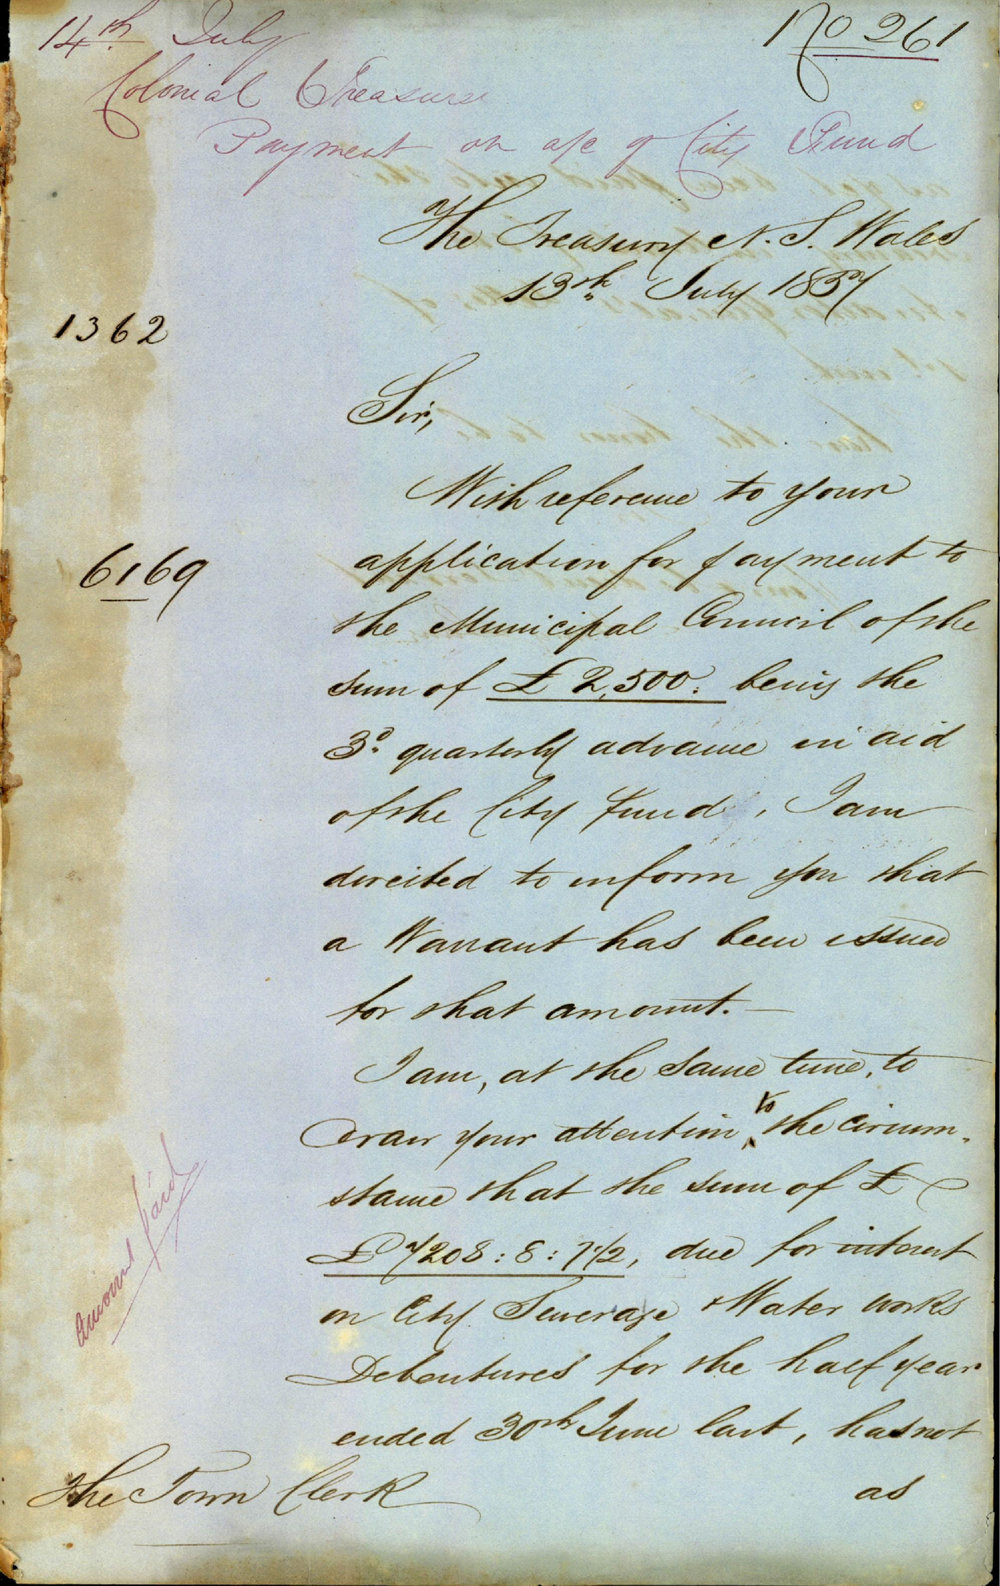 14th July
No 261
Colonial Treasurer
Payment on a/c of City Fund
The Treasury N. S. Wales
13th July 1857
1362
Sir,
With reference to your
6169
application for payment to
the Municipal Council of the
sum of £2,500. being the
3d. quarterly advance in aid
of the City Fund, I am
directed to inform you that
a Warrant has been issued
for that amount. —
I am, at the same time, to
draw your attention to the circum-
stance that the sum of £
£7208:8:7 1/2, due for interest
on City Sewerage & Water works
Debentures for the half year
ended 30th June last, has not
as
Amount paid
The Town Clerk